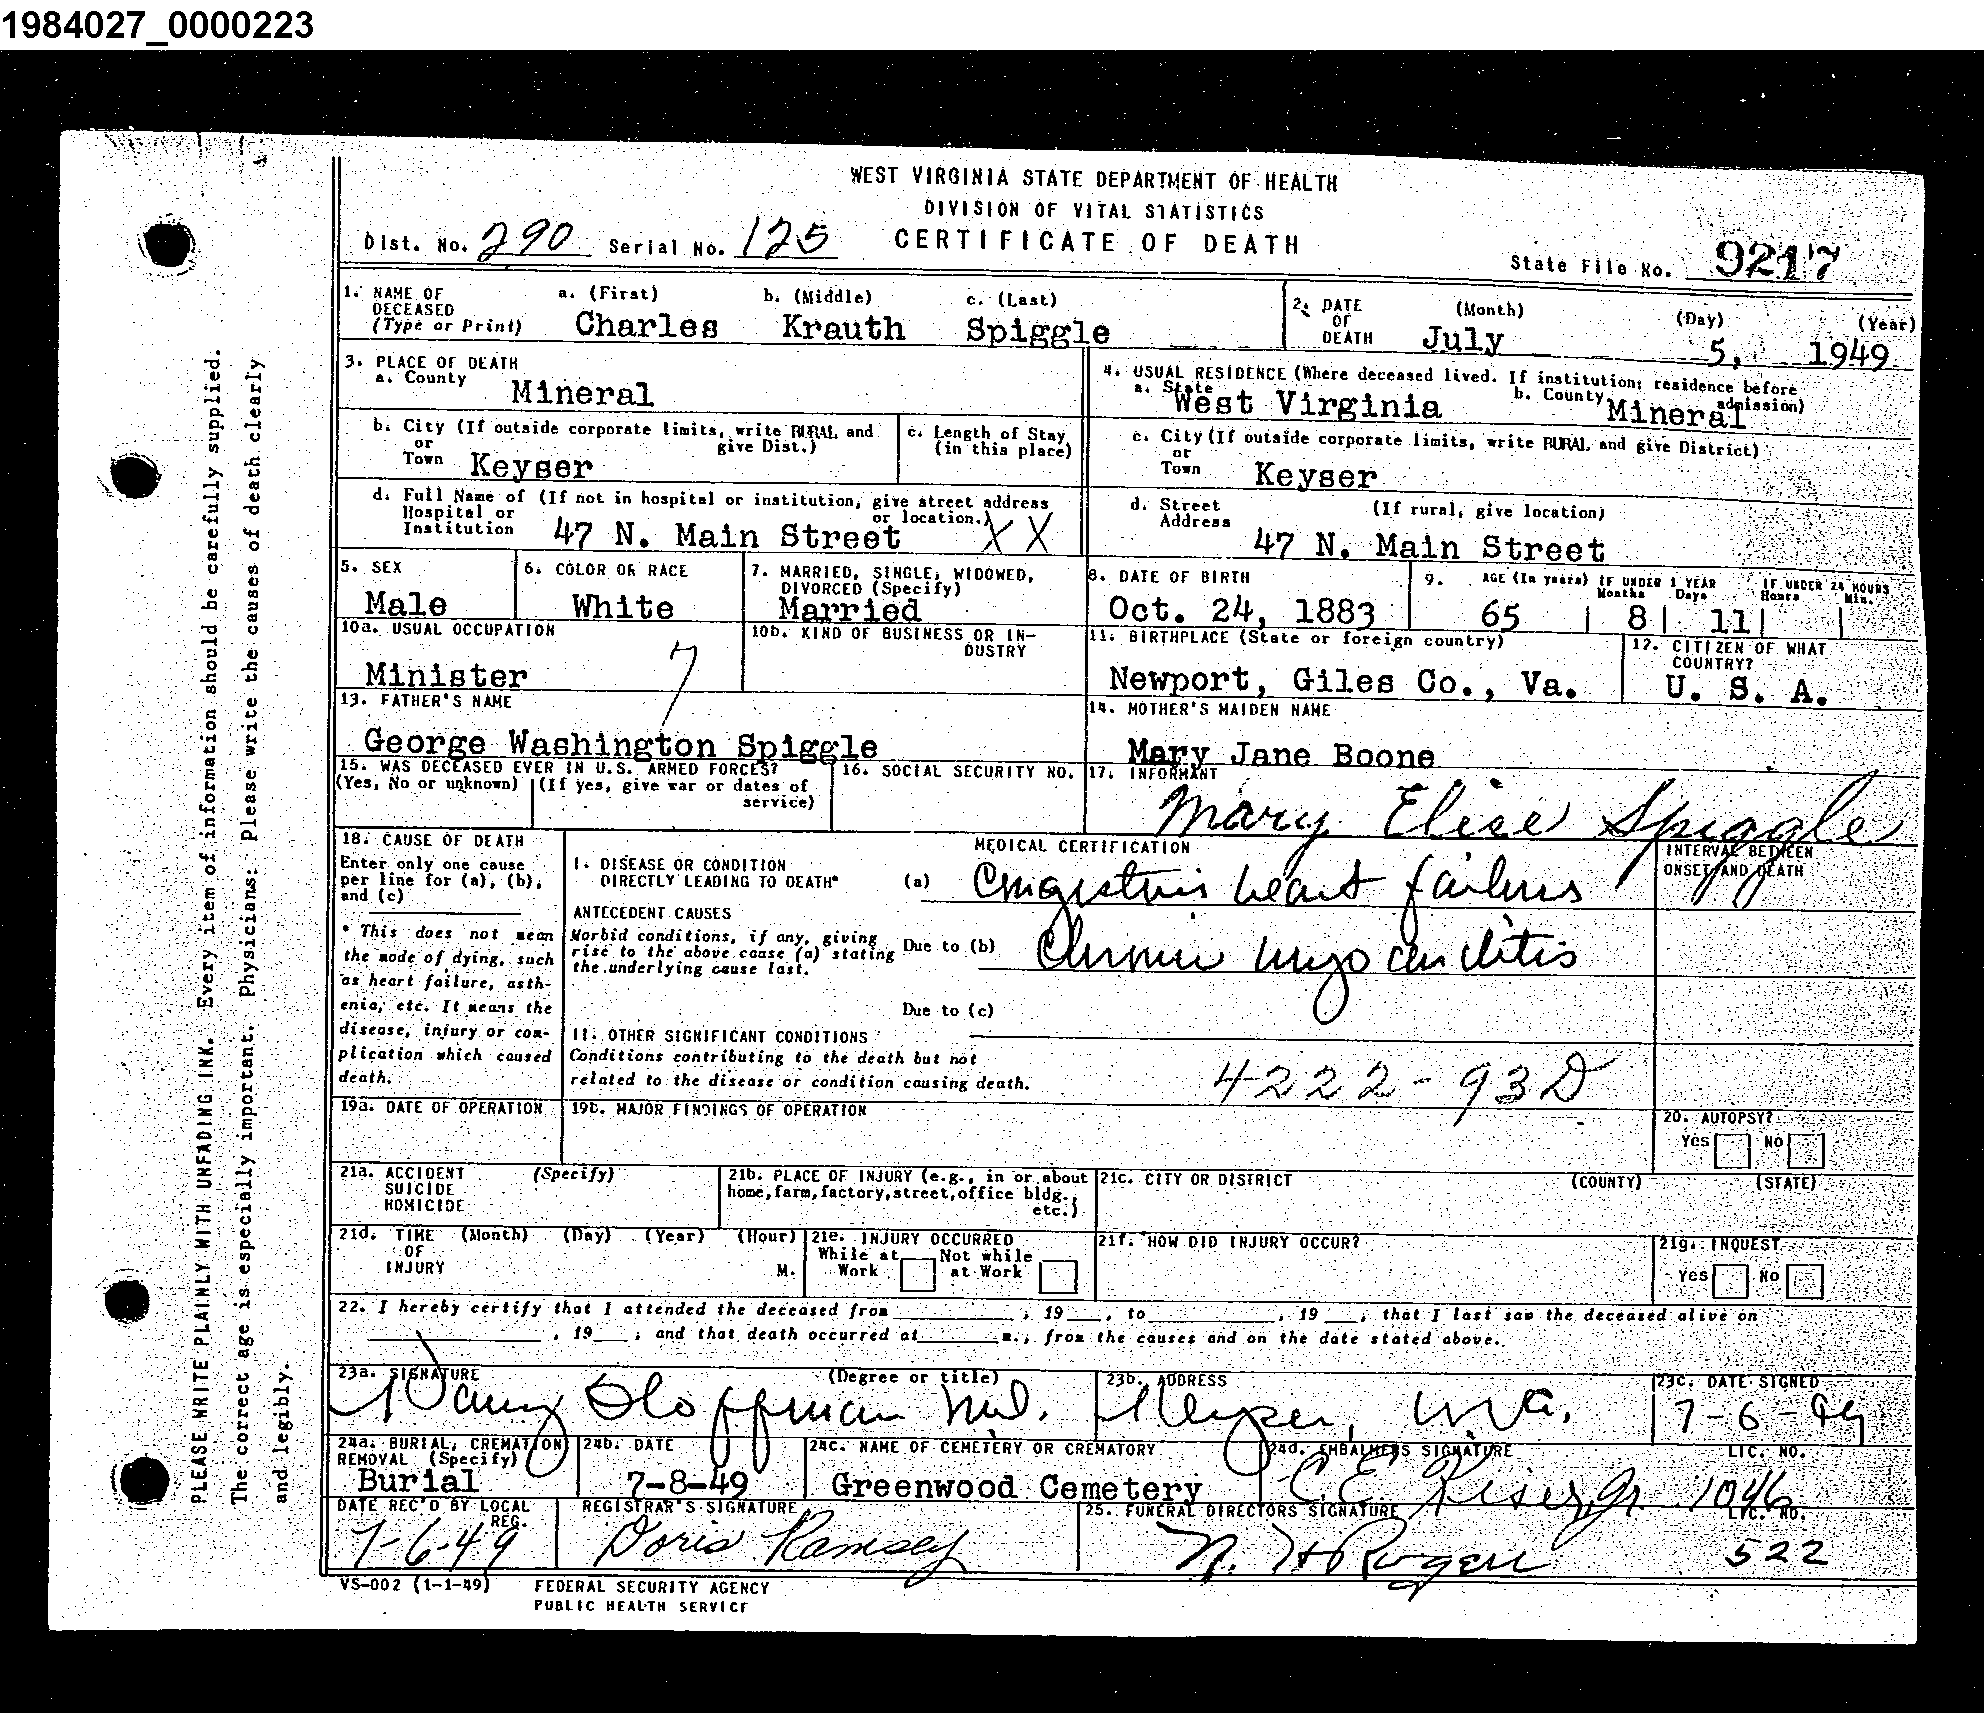 1984027_0000223
WEST VIRGINIA STATE DEPARTMENT OF HEALTH
DIVISION OF VITAL STATISTICS
Dist. No. 290 Serial No. 125 CERTIFICATE OF DEATH
State File No. 9217
1. NAME OF DECEASED (Type or Print) a. (First) b. (Middle) c. (Last)
Charles Krauth Spiggle
2. DATE OF DEATH (Month) (Day) (Year)
July 5, 1949
3. PLACE OF DEATH
a. County Mineral
b. City (If outside corporate limits, write RURAL and give Dist.)
or Town Keyser
c. Length of Stay (in this place)
d. Full Name of Hospital or Institution (If not in hospital or institution, give street address or location.)
47 N. Main Street XX
4. USUAL RESIDENCE (Where deceased lived. If institution: residence before admission)
a. State West Virginia b. County Mineral
c. City (If outside corporate limits, write RURAL and give District)
or Town Keyser
d. Street Address (If rural, give location)
47 N. Main Street
5. SEX
Male
6. COLOR OR RACE
White
7. MARRIED, SINGLE, WIDOWED, DIVORCED (Specify)
Married
8. DATE OF BIRTH
Oct. 24, 1883
9. AGE (In years) IF UNDER 1 YEAR Months Days IF UNDER 24 HOURS Hours Min.
65 8 11
10a. USUAL OCCUPATION
Minister 7
10b. KIND OF BUSINESS OR INDUSTRY
11. BIRTHPLACE (State or foreign country)
Newport, Giles Co., Va.
12. CITIZEN OF WHAT COUNTRY?
U. S. A.
13. FATHER'S NAME
George Washington Spiggle
14. MOTHER'S MAIDEN NAME
Mary Jane Boone
15. WAS DECEASED EVER IN U.S. ARMED FORCES?
(Yes, No or unknown) (If yes, give war or dates of service)
16. SOCIAL SECURITY NO.
17. INFORMANT
Mary Elise Spiggle
18. CAUSE OF DEATH
Enter only one cause per line for (a), (b), and (c)
* This does not mean the mode of dying, such as heart failure, asthenia, etc. It means the disease, injury or complication which caused death.
MEDICAL CERTIFICATION
INTERVAL BETWEEN ONSET AND DEATH
I. DISEASE OR CONDITION DIRECTLY LEADING TO DEATH* (a) Congestive heart failure
ANTECEDENT CAUSES
Morbid conditions, if any, giving rise to the above cause (a) stating the underlying cause last.
Due to (b) Chronic myocarditis
Due to (c)
II. OTHER SIGNIFICANT CONDITIONS
Conditions contributing to the death but not related to the disease or condition causing death.
4222-93D
19a. DATE OF OPERATION
19b. MAJOR FINDINGS OF OPERATION
20. AUTOPSY?
Yes No
21a. ACCIDENT SUICIDE HOMICIDE (Specify)
21b. PLACE OF INJURY (e.g., in or about home, farm, factory, street, office bldg., etc.)
21c. CITY OR DISTRICT (COUNTY) (STATE)
21d. TIME OF INJURY (Month) (Day) (Year) (Hour) M.
21e. INJURY OCCURRED
While at Work Not while at Work
21f. HOW DID INJURY OCCUR?
21g. INQUEST
Yes No
22. I hereby certify that I attended the deceased from , 19 , to , 19 , that I last saw the deceased alive on
, 19 , and that death occurred at m., from the causes and on the date stated above.
23a. SIGNATURE (Degree or title)
Hoffman M.D.
23b. ADDRESS
Keyser, W Va.
23c. DATE SIGNED
7-6-49
24a. BURIAL, CREMATION REMOVAL (Specify)
Burial
24b. DATE
7-8-49
24c. NAME OF CEMETERY OR CREMATORY
Greenwood Cemetery
24d. EMBALMERS SIGNATURE LIC. NO.
C. E. Kiser, Jr. 1046
DATE REC'D BY LOCAL REG.
7-6-49
REGISTRAR'S SIGNATURE
Doris Ramsey
25. FUNERAL DIRECTORS SIGNATURE LIC. NO.
N. H. Rogers 522
VS-002 (1-1-49) FEDERAL SECURITY AGENCY
PUBLIC HEALTH SERVICE
PLEASE WRITE PLAINLY WITH UNFADING INK. Every item of information should be carefully supplied.
The correct age is especially important. Physicians: Please write the causes of death clearly
and legibly.